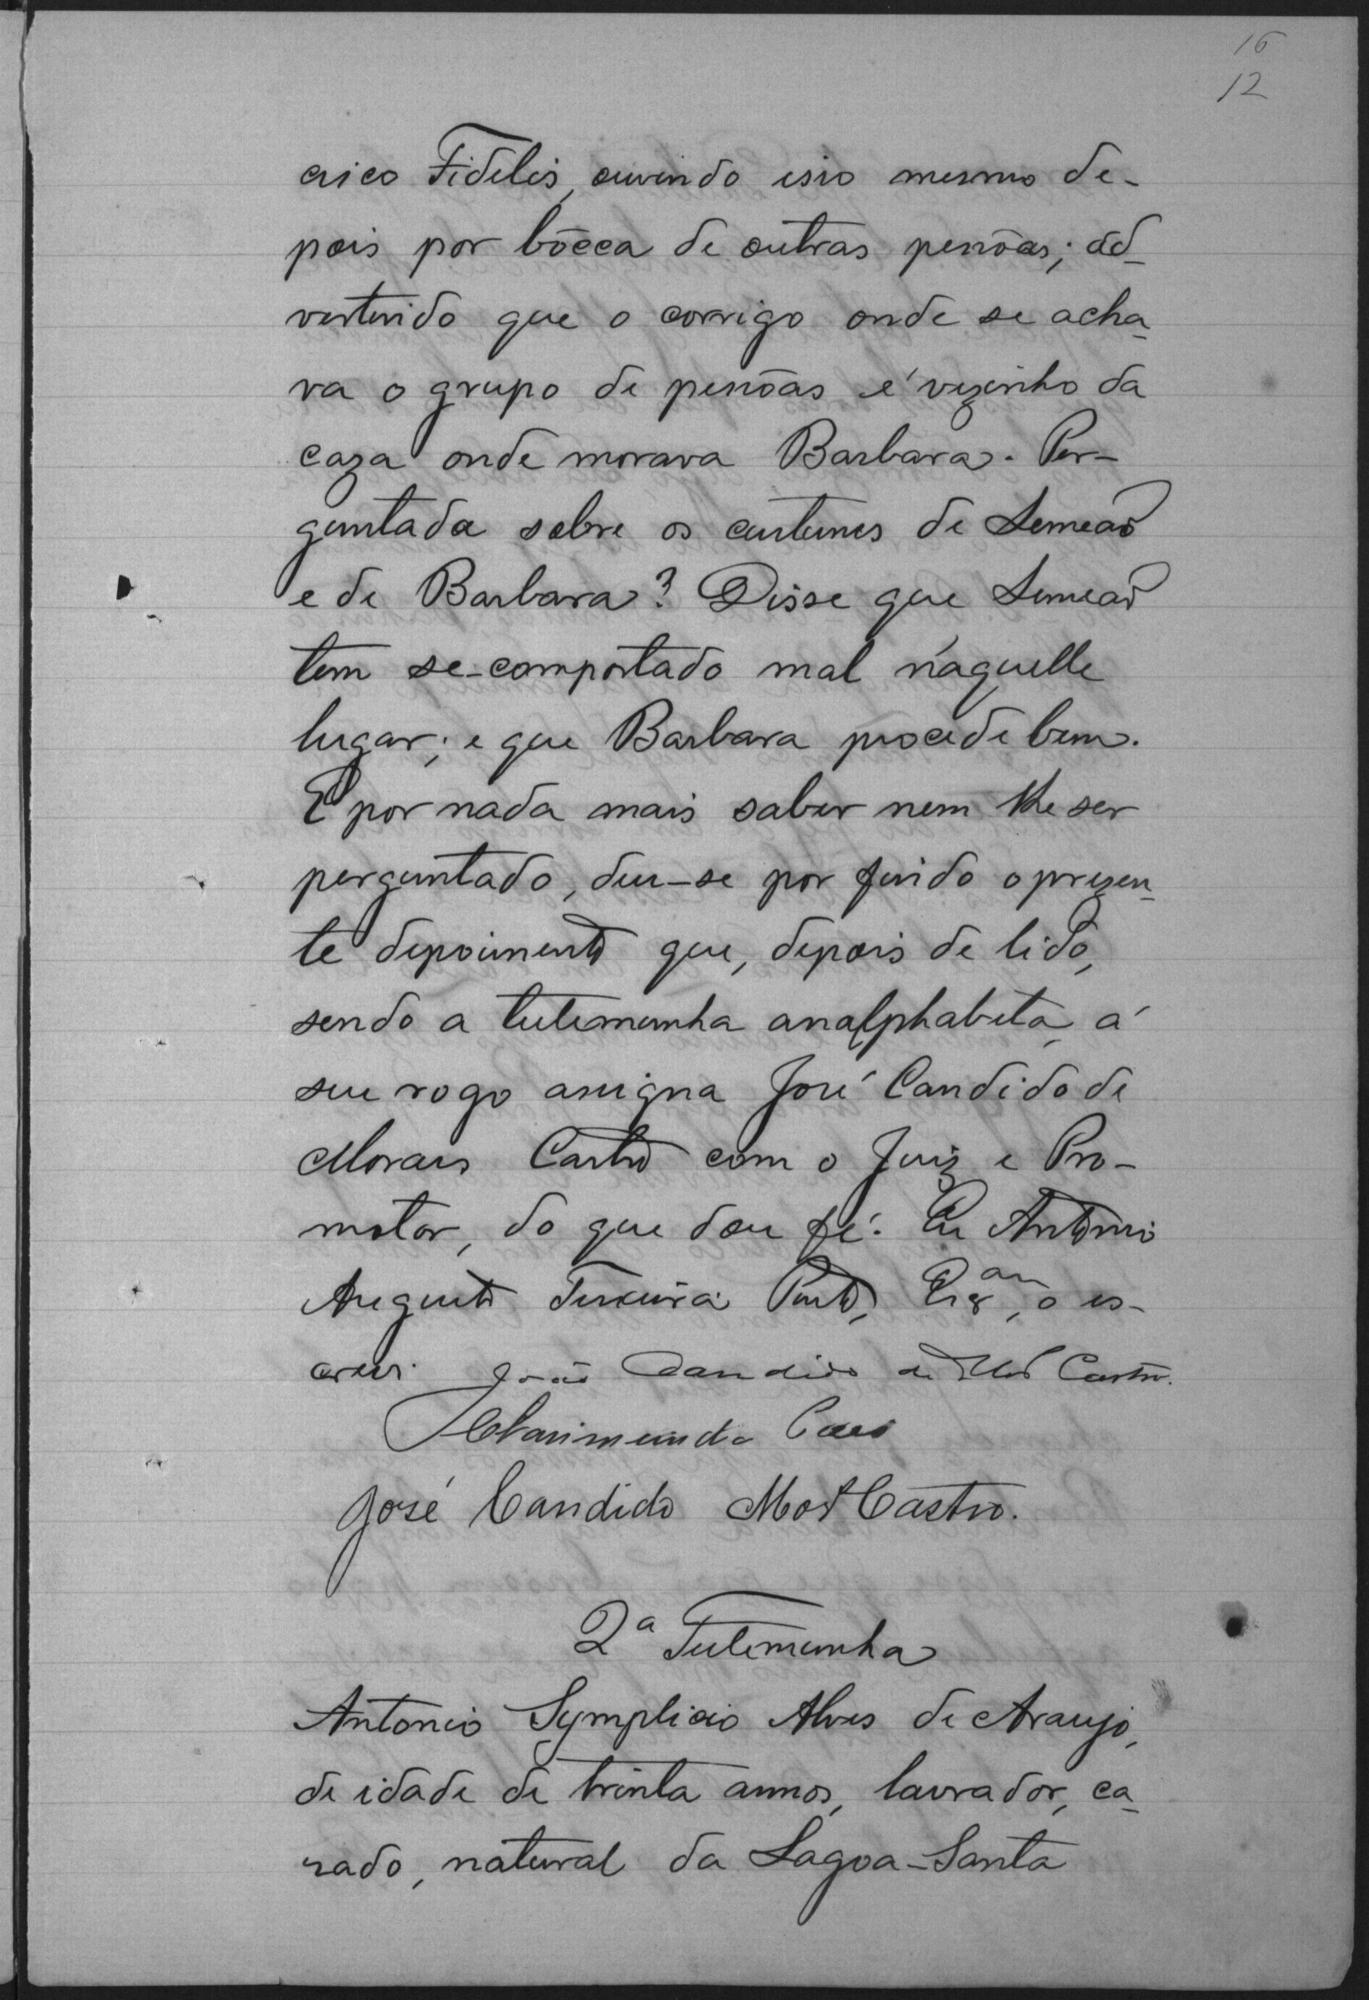 16
12
crico Fidelis, ouvindo isso mesmo de-
pois por bôcca de outras pessôas; ad-
vertindo que o corrigo onde se acha-
va o grupo de pessôas é vezinho da
caza onde morava Barbara. Per-
guntada sobre os custumes de Semeaõ
e de Barbara? Disse que Semeaõ
tem se-comportado mal n'aquelle
lugar; e que Barbara procede bem.
E por nada mais saber nem lhe ser
perguntado, deu-se por findo o prezen-
te depoimento que, depois de lido,
sendo a testemunha analphabeta, á
seu rogo assigna José Candido de
Moraes Castro com o Juiz e Pro-
motor, do que dou fé. Eu Antonio
Augusto Teixeira Porto, Escam, o es-
crevi. João Candido de Mor Castro.
Clarimundo Paes
José Candido Mor Castro.
2a Testemunha
Antonio Symplicio Alves de Araujo,
de idade de trinta annos, lavrador, ca-
zado, natural da Lagoa-Santa